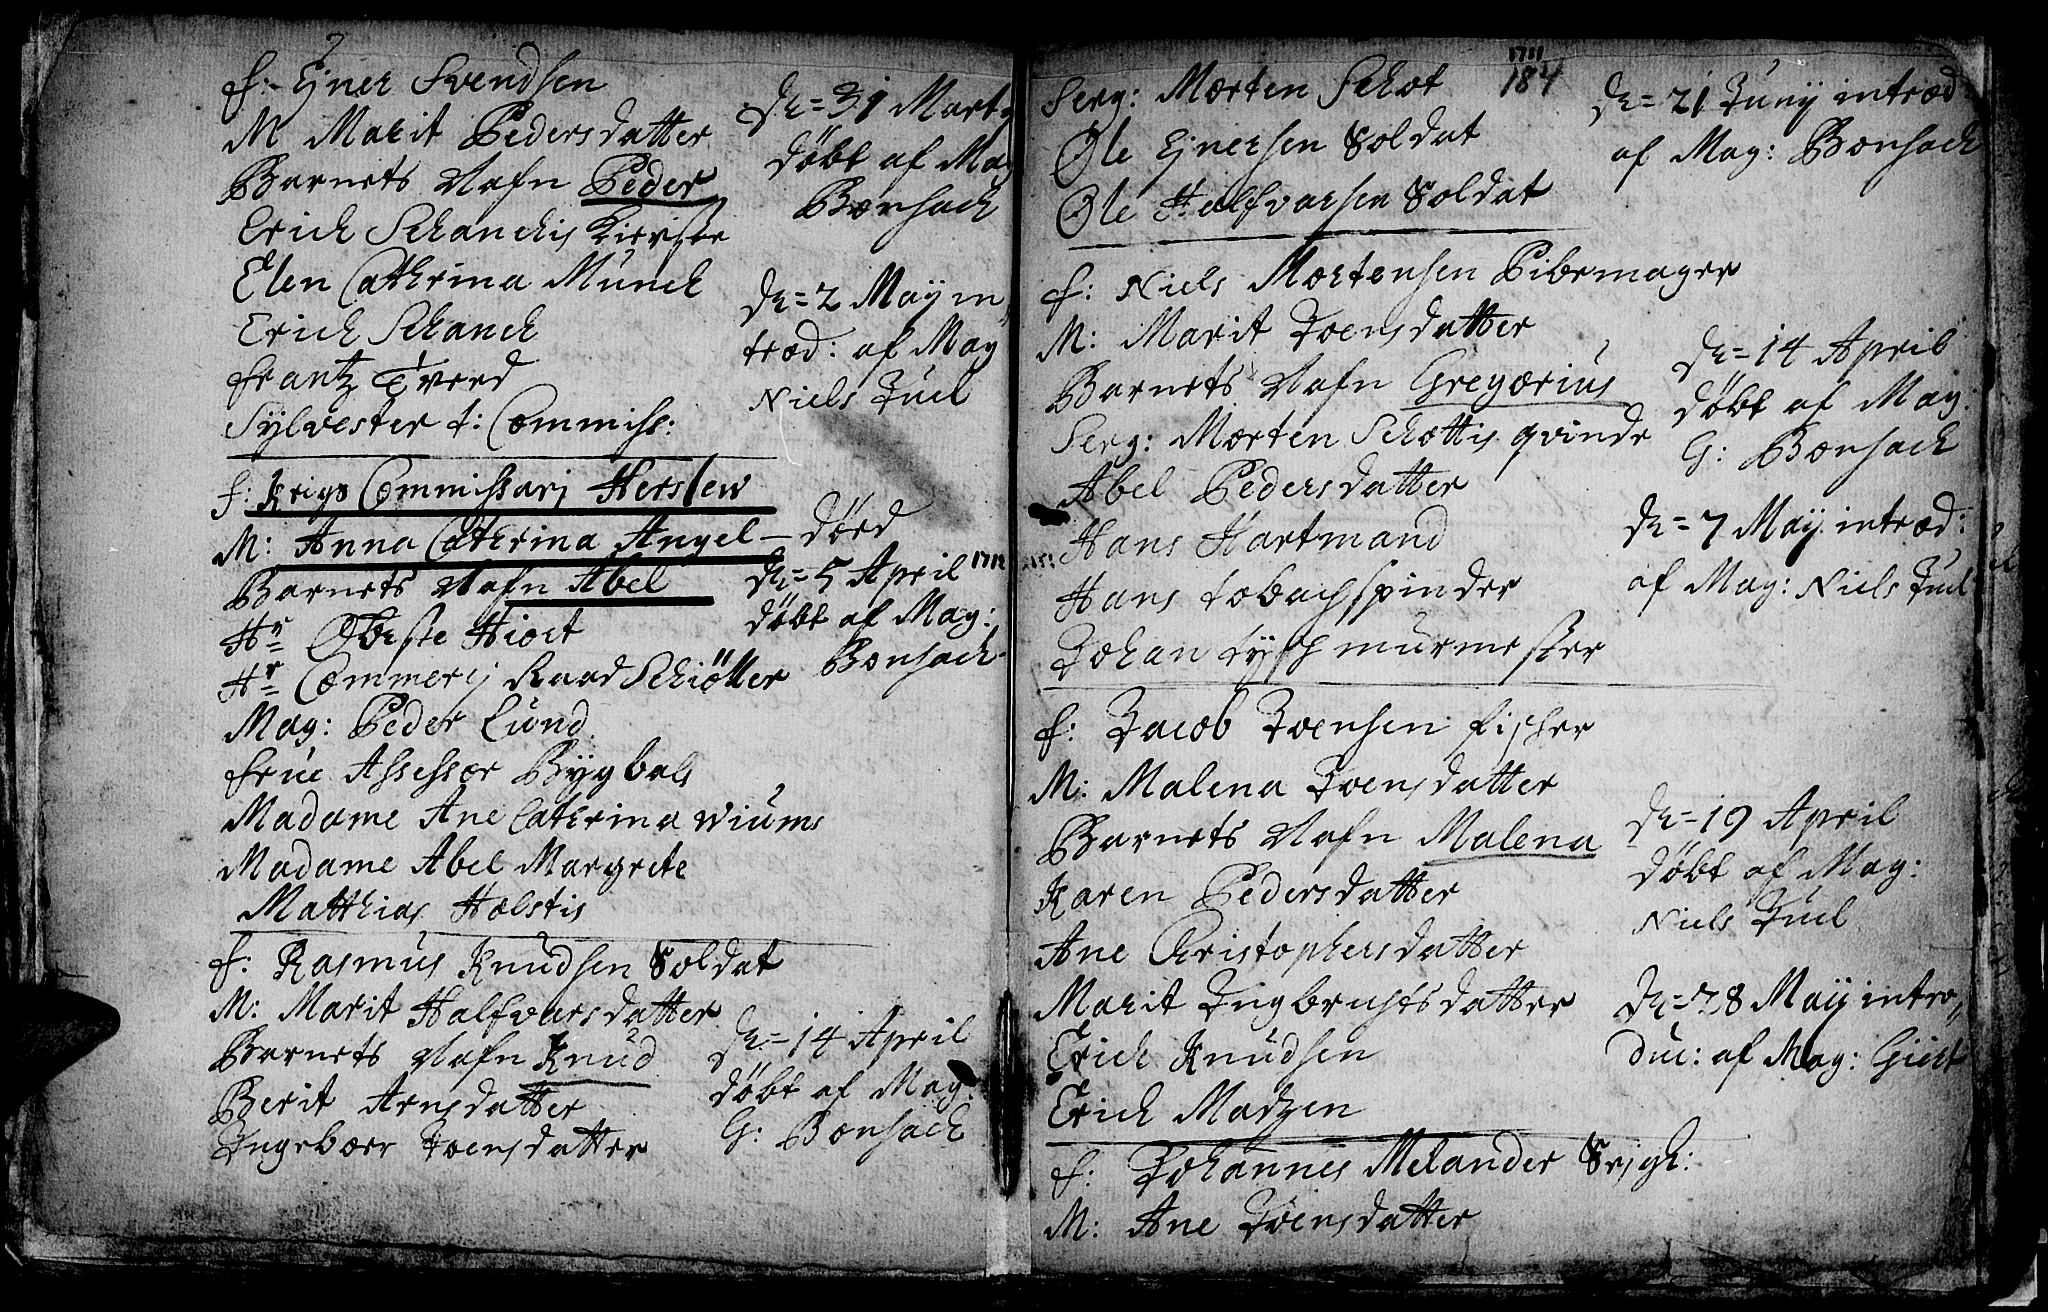 f: Ejner Svendsen
M Marit Pedersdatter
Barnets Nafn Peder
Erich Schanchis Kierste
Elen Cathrina Munch
Erich Schanch
frantz Tverd
Sylvester t: Commiss:
dn = 31 Marty
døbt af Mag
Bonsach
dn = 2 Maij in
træd: af Mag
Niels Juel
f: Krigs Commissarj Herslew
M: Anna Catherina Angel – dörd
Barnets Nafn Abel
Hr Obriste Hiort
Hr Commercij Raad Schiøtter
Mag: Peder Lund
frue Assessor Bygbals
Madame Ane Cathrina Wiums
Madame Abel Margrete
Matthias Holstis
dn = 5 April 1712
døbt af Mag:
Bonsach
f: Rasmus Knudsen Soldat
M: Marit Halfvarsdatter
Barnets Nafn Knud
Berit Arnsdatter
Ingeborr Joensdatter
dn = 14 April
døbt af Mag:
G: Bonsach
1711
184
Serg: Morten Schot
Ole Ejnersen Soldat
Ole Halfvarsen Soldat
dn = 21 Junij intræd:
af Mag: Bonsach
f: Niels Mortensen Pibemager
M: Marit Joensdatter
Barnets Nafn Gregorius
Serg: Morten Schottis qvinde
Abel Pedersdatter
Hans Hartmand
Hans tobachspinder
Johan tysch murmester
dn = 14 April
døbt af Mag:
G: Bonsach
dn = 7 Maij intræd:
af Mag: Niels Juel
f: Jacob Joensen fischer
M: Malena Joensdatter
Barnets Nafn Malena
Karen Pedersdatter
Ane Christophersdatter
Marit Ingbrechtsdatter
Erich Knudsen
Erich Madzen
dn = 19 April
døbt af Mag:
Niels Juel
dn = 28 Maij intro,,
duc: af Mag: Giert
f: Johannes Melander
M: Ane Joensdatter